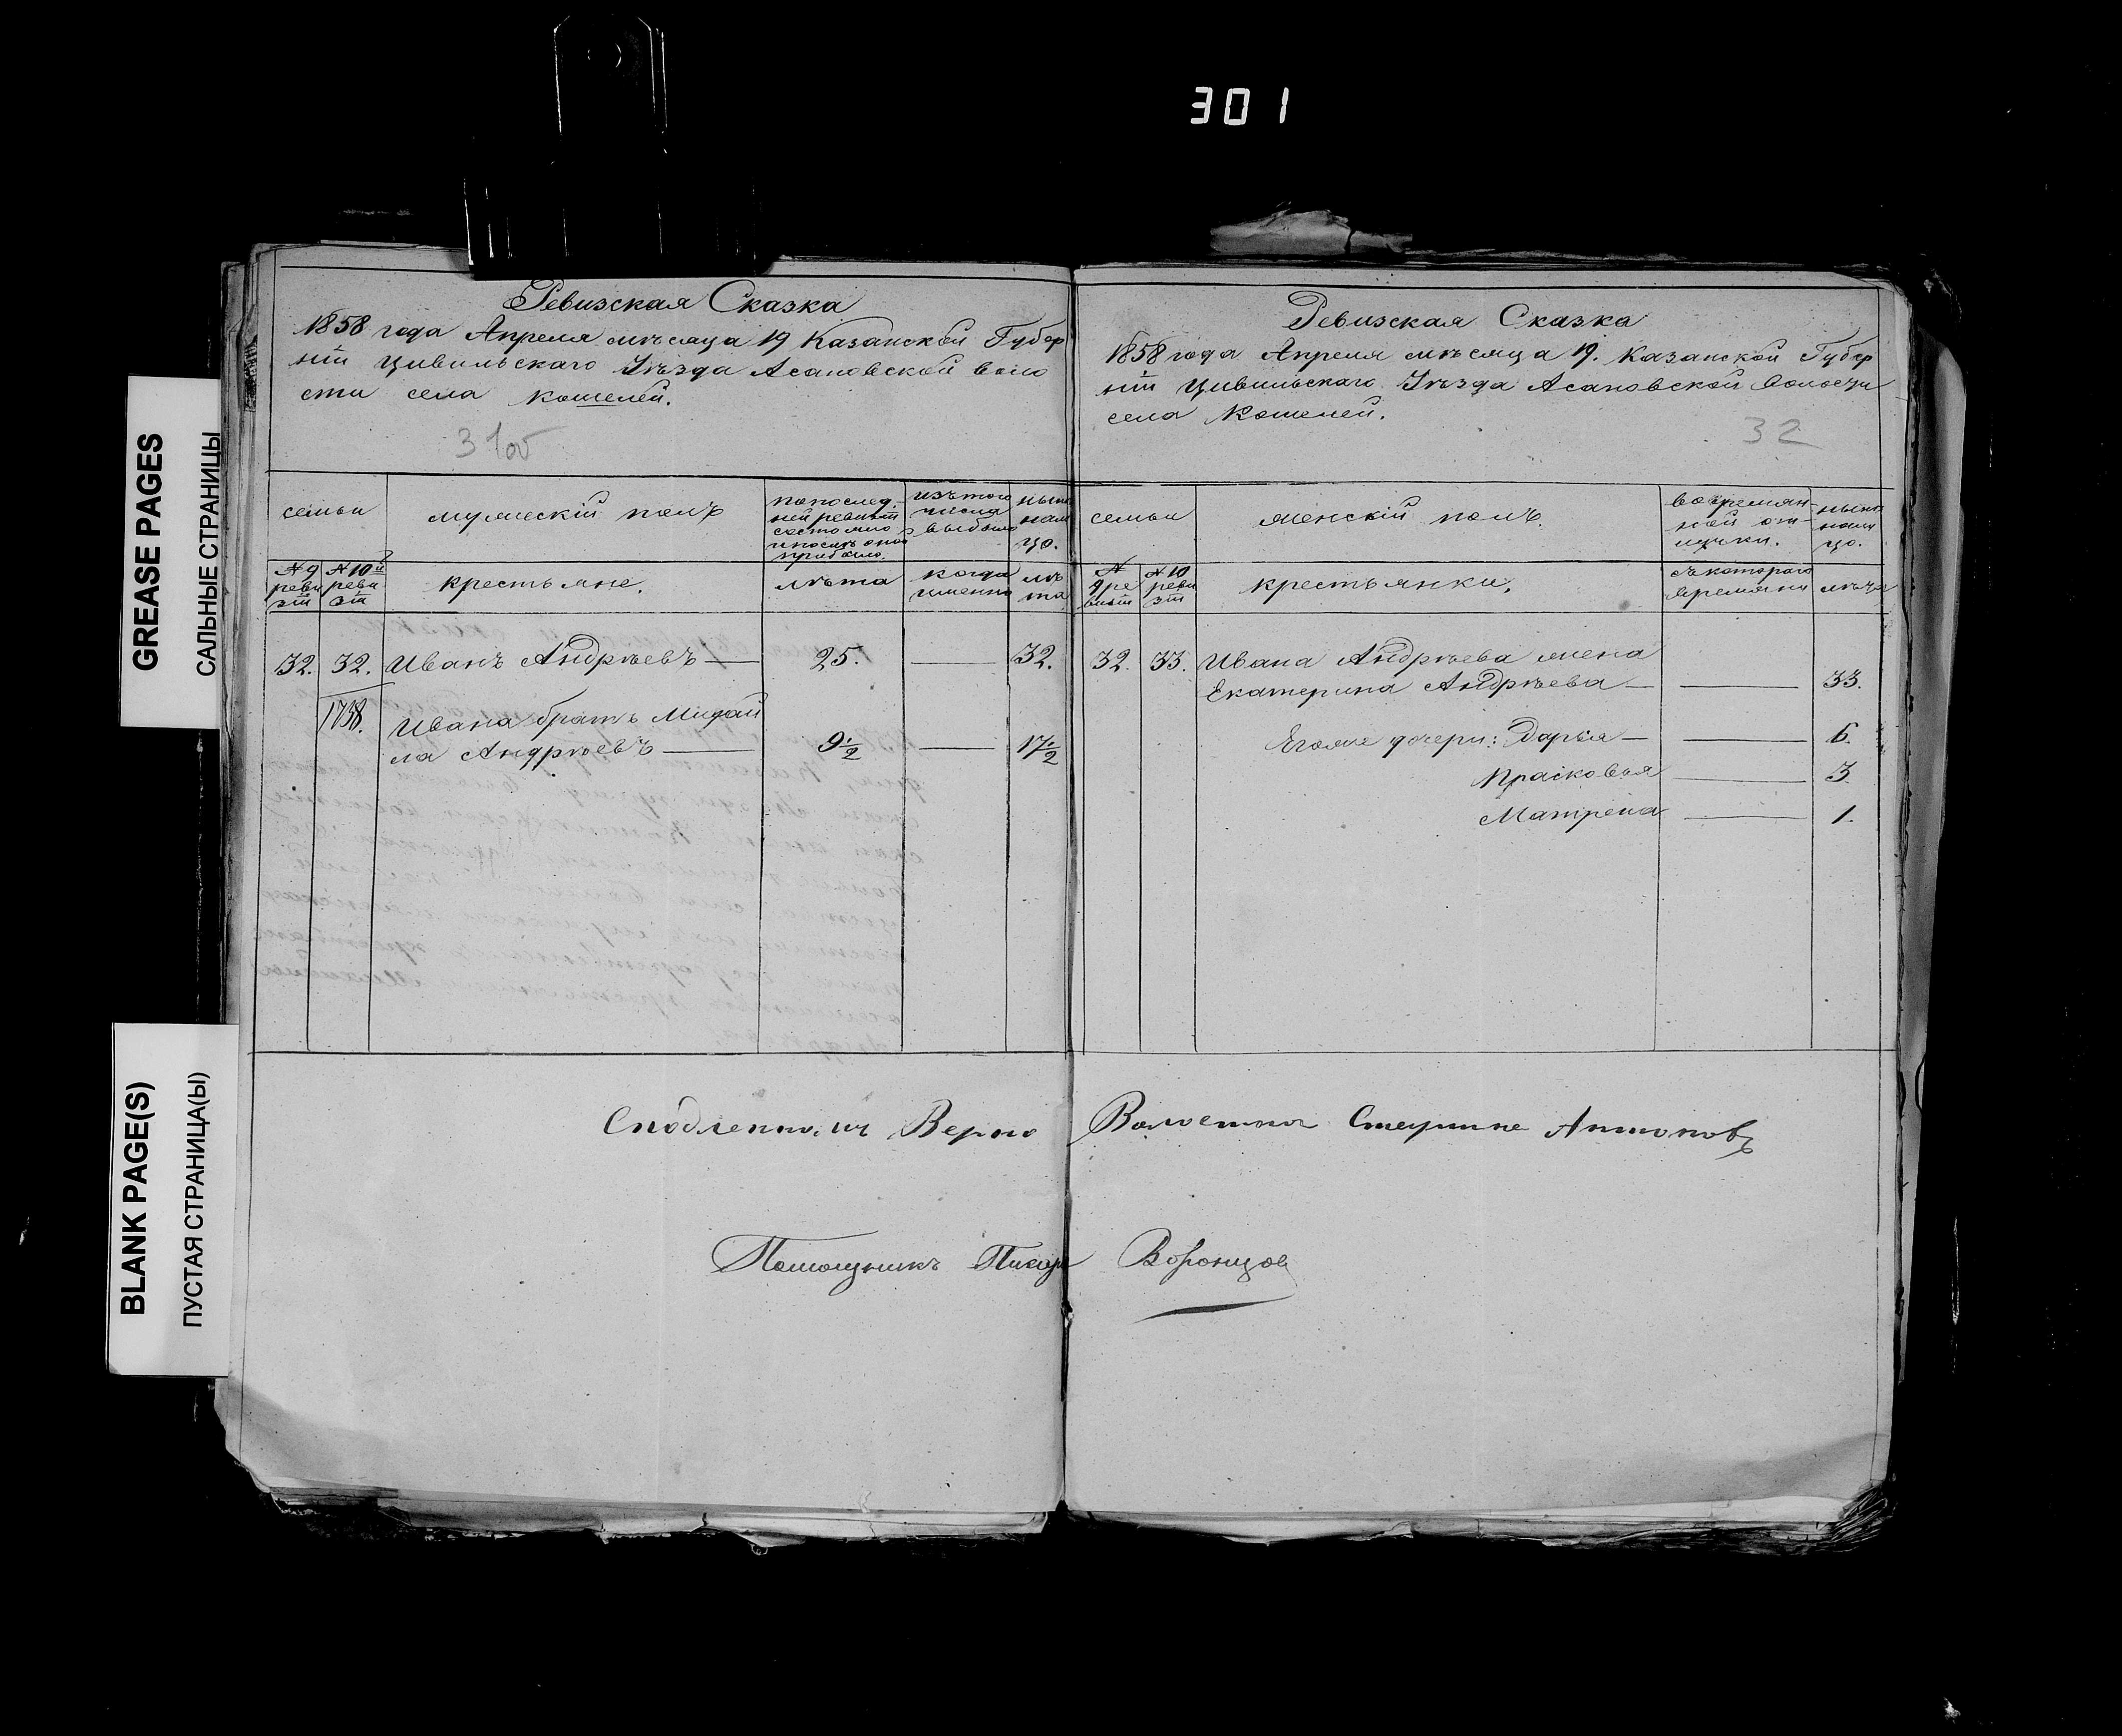 301
GREASE PAGES
САЛЬНЫЕ СТРАНИЦЫ
BLANK PAGE(S)
ПУСТАЯ СТРАНИЦА(Ы)
Ревизская Сказка
1858 года Апреля мѣсяца 19 Казанской Губер
нiи Цивильскаго Уѣзда Асановской воло
сти села Кошелей.
31об
семьи
мужескiй полъ
по послед
ней ревизiи
состояло
и послѣ оной
прибыло.
изъ того
числа
выбыло
ныне
нали
цо.
№ 9
реви
зiи
№ 10й
реви
зiи
крестьяне.
лѣта
когда
именно
лѣ
та
32. 32. Иванъ Андрѣевъ — 25. — 32.
1738. Ивана братъ Михай
ла Андрѣевъ — 9½ — 17½
Ревизская Сказка
1858 года Апреля мѣсяца 19. Казанской Губер
нiи Цивильскаго Уѣзда Асановской Волости
села Кошелей.
32
семьи
женскiй полъ.
во времян-
ной от-
лучки.
ныне
нали
цо.
№
9 ре
визiи
№ 10
реви
зiи
крестьянки.
съ котораго
времяни
лѣта
32. 33. Ивана Андрѣева жена
Екатерина Андрѣева — — 33.
Егоже дочери: Дарья — — 6.
Прасковья — 3.
Матрена — 1.
Сподленнымъ Верно Волостной Старшина Антоновъ
Помощникъ Писаря Воронцов